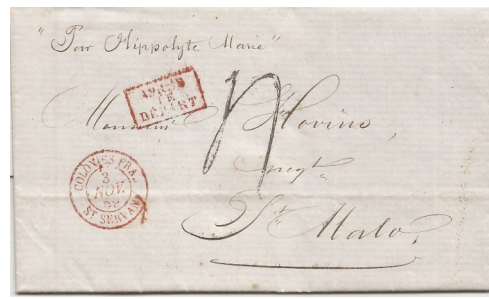 "Par Hippolyte Marie"
APRÈS
LE
DÉPART
Monsieur Hovius,
negt
St Malo,
COLONIES FRA.
3
NOV.
ST SERVAN